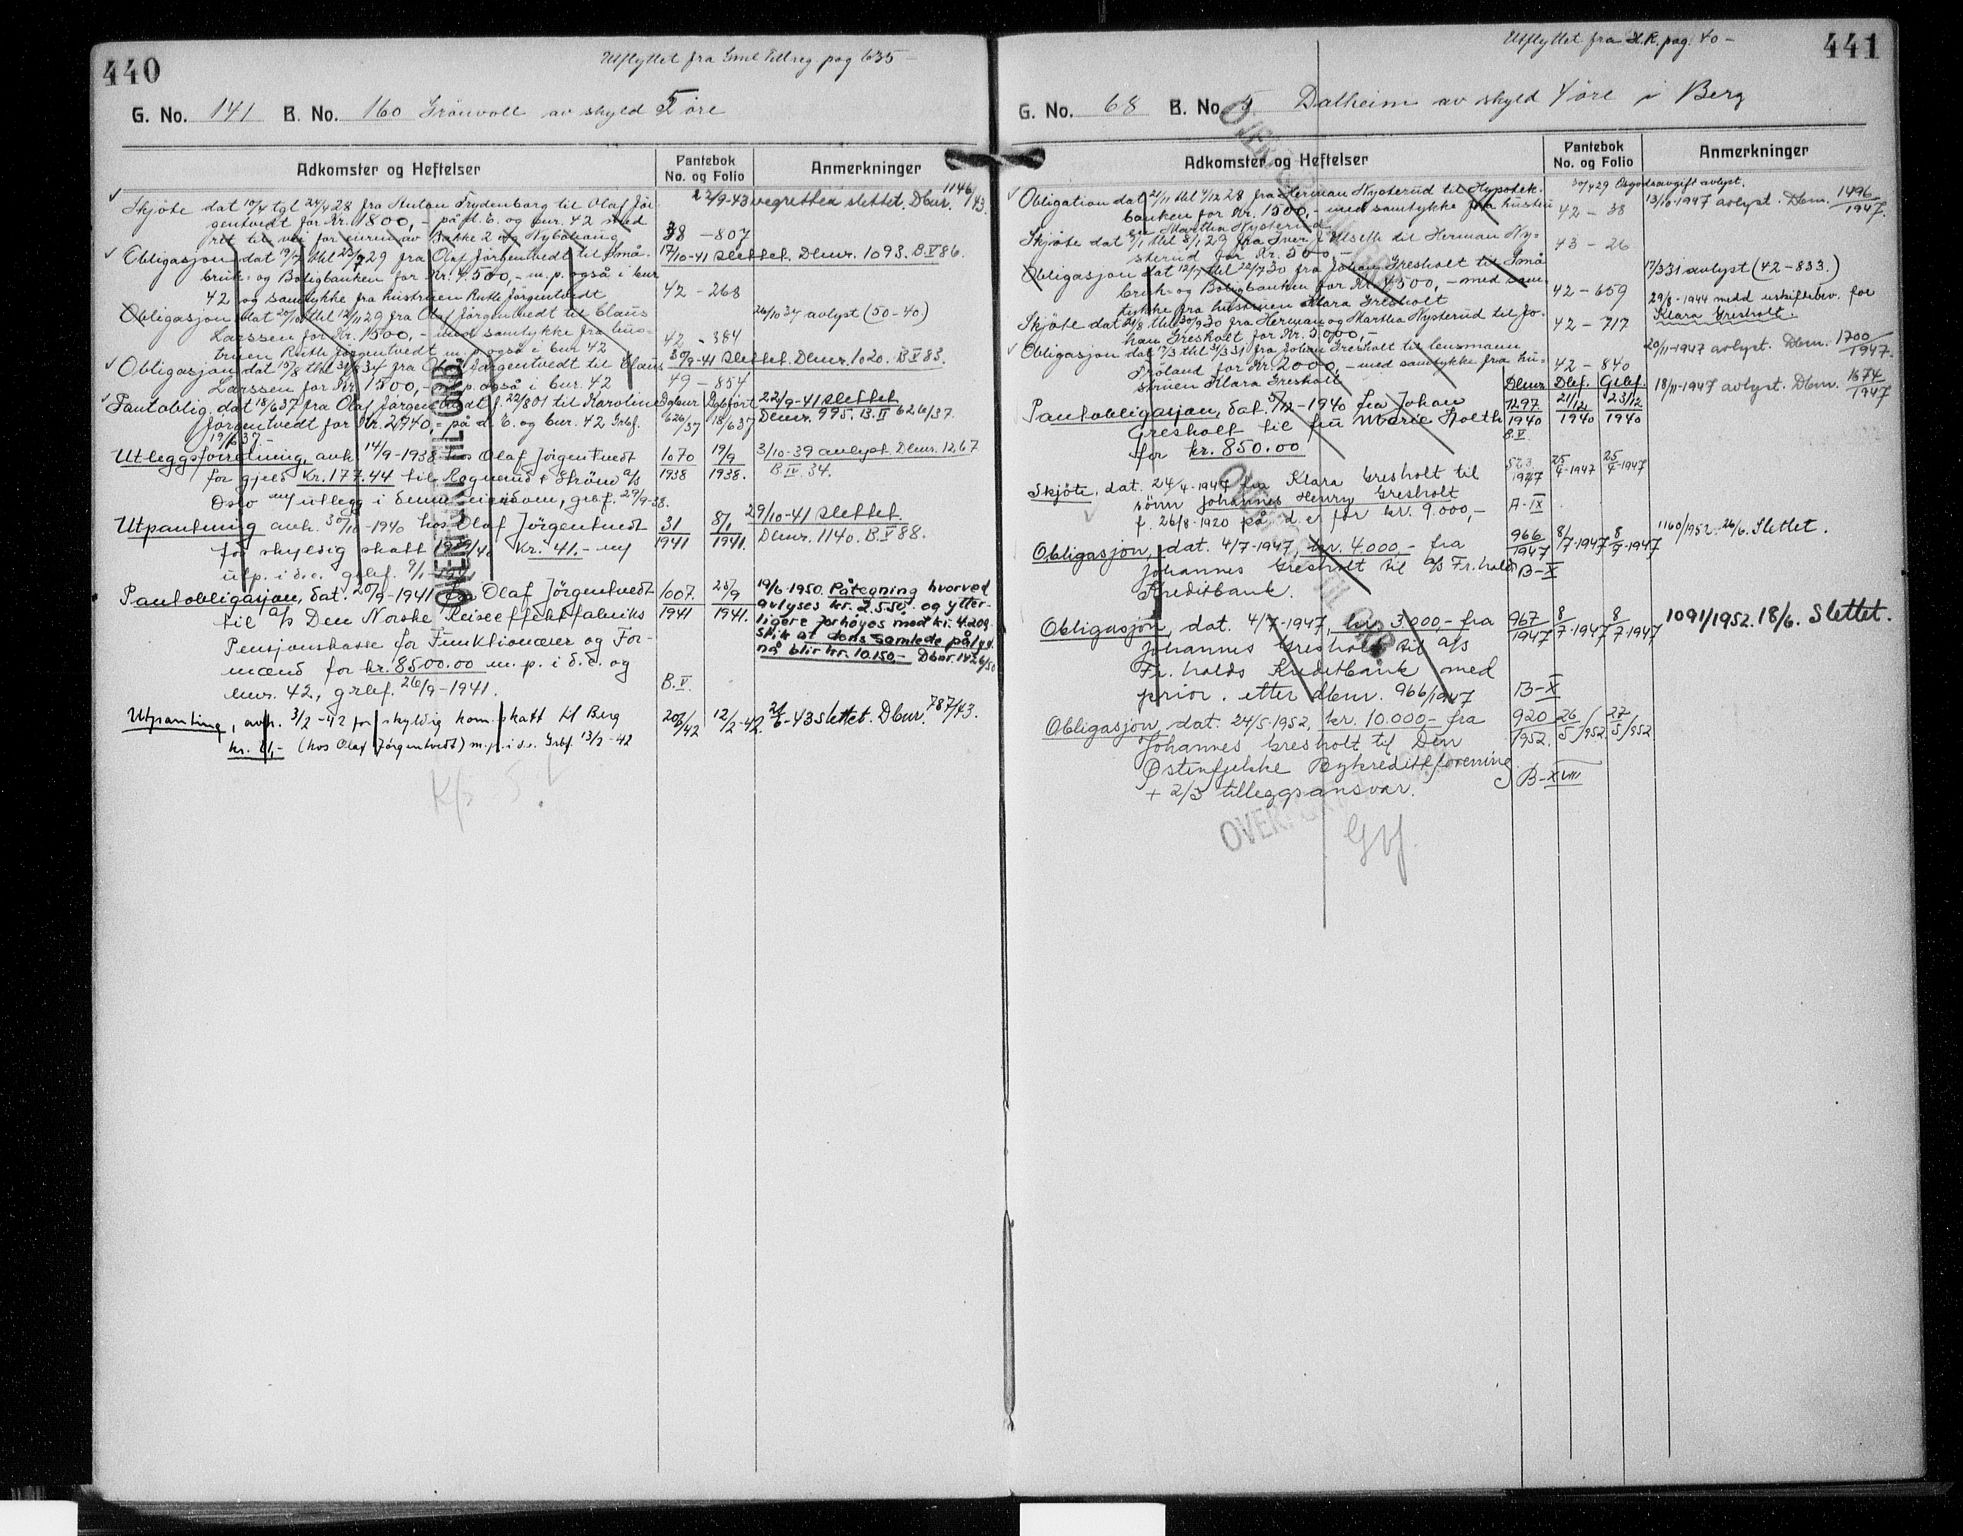 440
Utflyttet fra Gml Tillreg pag 635 -
G. No. 141 B. No. 160 Grönvoll av skyld 5 øre
Adkomster og Heftelser
Pantebok
No. og Folio
Anmerkninger
Skjöte dat 10/4 tgl 24/4 28 fra Anton Frydenborg til Olaf Jör-
gentvedt for Kr. 1800,- på d. E. og bnr. 42 med
ret til vei for eieren av Bakke 2 og Nybohaug
38 - 807
22/9-43 vegretten slettet. Dbnr. 1146/43.
Obligasjon dat 19/7 thl 23/7 29 fra Olaf Jörgentvedt til Små-
bruk- og Boligbanken for Kr. 4.500,- m. p. også i bnr
42 og samtykke fra hustruen Ruth Jörgentvedt
42 - 268
17/10-41 slettet. Dbnr. 1093. B.V 86.
Obligasjon dat 20/10 thl 12/11 29 fra Olaf Jörgentvedt til Claus
Larssen for Kr. 1500,- med samtykke fra hus-
truen Ruth Jörgentvedt m. p. også i bnr 42
42 - 384
26/10 34 avlyst (50-40)
Obligasjon dat 15/8 thl 31/8 34 fra Olaf Jörgentvedt til Claus
Larssen for Kr. 1500,- m. p. også i bnr. 42
49 - 854
30/9-41 slettet. Dbnr. 1020. B.V 83.
Pantoblig. dat 18/6 37 fra Olaf Jörgentvedt f. 22/8 01 til Karoline
Jörgentvedt for Kr. 2940,- på d. E. og bnr. 42 Grbf.
19/6 37. -
Dgbnr. Dgbført
626/37 18/6 37
22/9-41 slettet
Dbnr. 995. B.II 626/37.
Utleggsforretning, avh. 14/9-1938 hos Olaf Jörgentvedt
for gjeld Kr. 177.44 til Rognerud & Strönd a/s
Oslo m/ utlegg i denne eiendom, grbf. 29/9-38.
1070
1938
19/9
1938.
3/10-39 avlyst Dbnr. 1267
B.IV 34.
Utpantning avh. 30/10-1940 hos Olaf Jörgentvedt
for skyldig skatt 1939/40 Kr. 41.- m/
utp. i d.e. grbf. 9/1-1941
31
1941
8/1
1941.
29/10-41 slettet.
Dbnr. 1140. B.V 88.
Pantobligasjon, dat. 20/9-1941 fra Olaf Jörgentvedt
til a/s Den Norske Reiseeffektfabriks
Pensjonskasse for Funktionærer og For-
mænd for kr. 8500.00 m. p. i d.e. og
bnr. 42, grbf. 26/9-1941.
607.
1941
25/9
1941.
B.V.
19/6-1950. Påtegning hvorved
avlyses kr. 2.550. og ytter-
ligere forhöyes med kr. 4.200.
slik at dens samlede pålyd.
nå blir kr. 10.150,- Dbnr. 1426/50
Utpanting, avh. 3/2-42 for skyldig kom. skatt til Berg
kr. 11,- (hos Olaf Jörgentvedt) m.p. i d.e. Grbf. 13/2-42
202/42
12/2-42.
21/6-43 slettet. Dbnr. 787/43.
OVERFÖRT TIL GRB.
441
Utflyttet fra H.R. pag. 40 -
G. No. 68 B. No. 5 Dalheim av skyld 4 øre i Berg
Adkomster og Heftelser
Pantebok
No. og Folio
Anmerkninger
Obligation dat 21/11 thl 4/12 28 fra Herman Nysterud til Hypotek-
banken for Kr. 1500,- med samtykke fra hustru
Martha Nysterud
42 - 38
13/10-1947 avlyst. Dbnr. 1496/1947.
Skjöte dat 5/1 thl 8/1 29 fra Iver J. Ulseth til Herman Ny-
sterud for Kr. 500,-
43 - 26
Obligasjon dat 12/7 thl 22/7 30 fra Johan Gresholt til Små
bruk- og Boligbanken for Kr. 4500,- med sam-
tykke fra hustruen Klara Gresholt
42 - 659
17/3 31 avlyst (42-833.)
Skjöte dat 21/8 thl 30/9 30 fra Herman og Martha Nysterud til Jo-
han Gresholt for Kr. 3000,-
42 - 717
29/8-1944 medd uskiftebev. for
Klara Gresholt.
Obligasjon dat 17/3 thl 31/3 31 fra Johan Gresholt til lensmann
Fröland for Kr. 2000,- med samtykke fra hu-
struen Klara Gresholt
42 - 840
20/11-1947 avlyst. Dbnr. 1700/1947.
Dbnr. Dbf. Grbf.
Pantobligasjon, dat. 5/12-1940 fra Johan
Gresholt til fru Marie Holth
for kr. 850.00
1297
1940
B.V.
21/12
1940
23/12
1940
18/11-1947 avlyst. Dbnr. 1674/1947
Skjöte, dat. 24/4-1947 fra Klara Gresholt til
sönn Johannes Henry Gresholt
f. 26/8-1920 på d.e for kr. 9.000,-
523
1947
A-IX
25/4-1947
25/4-1947
Obligasjon, dat. 4/7-1947, kr. 4.000,- fra
Johannes Gresholt til a/s Fr.halds
Kreditbank.
966
1947
B-X
8/7-1947
8/7-1947
1160/1952. 26/6. Slettet.
Obligasjon, dat. 4/7-1947, kr. 3.000,- fra
Johannes Gresholt til a/s
Fr.halds Kreditbank med
prior. etter dbnr. 966/1947
967
1947
B-X
8/7-1947
8/7-1947
1091/1952. 18/6. Slettet.
Obligasjon, dat. 24/5-1952, kr. 10.000,- fra
Johannes Gresholt til Den
Østenfjelske Bykreditforening
+ 2/3 tilleggsansvar.
920
1952.
B-XVIII
26/5 1952.
27/5 1952
OVERFÖRT TIL GRB.